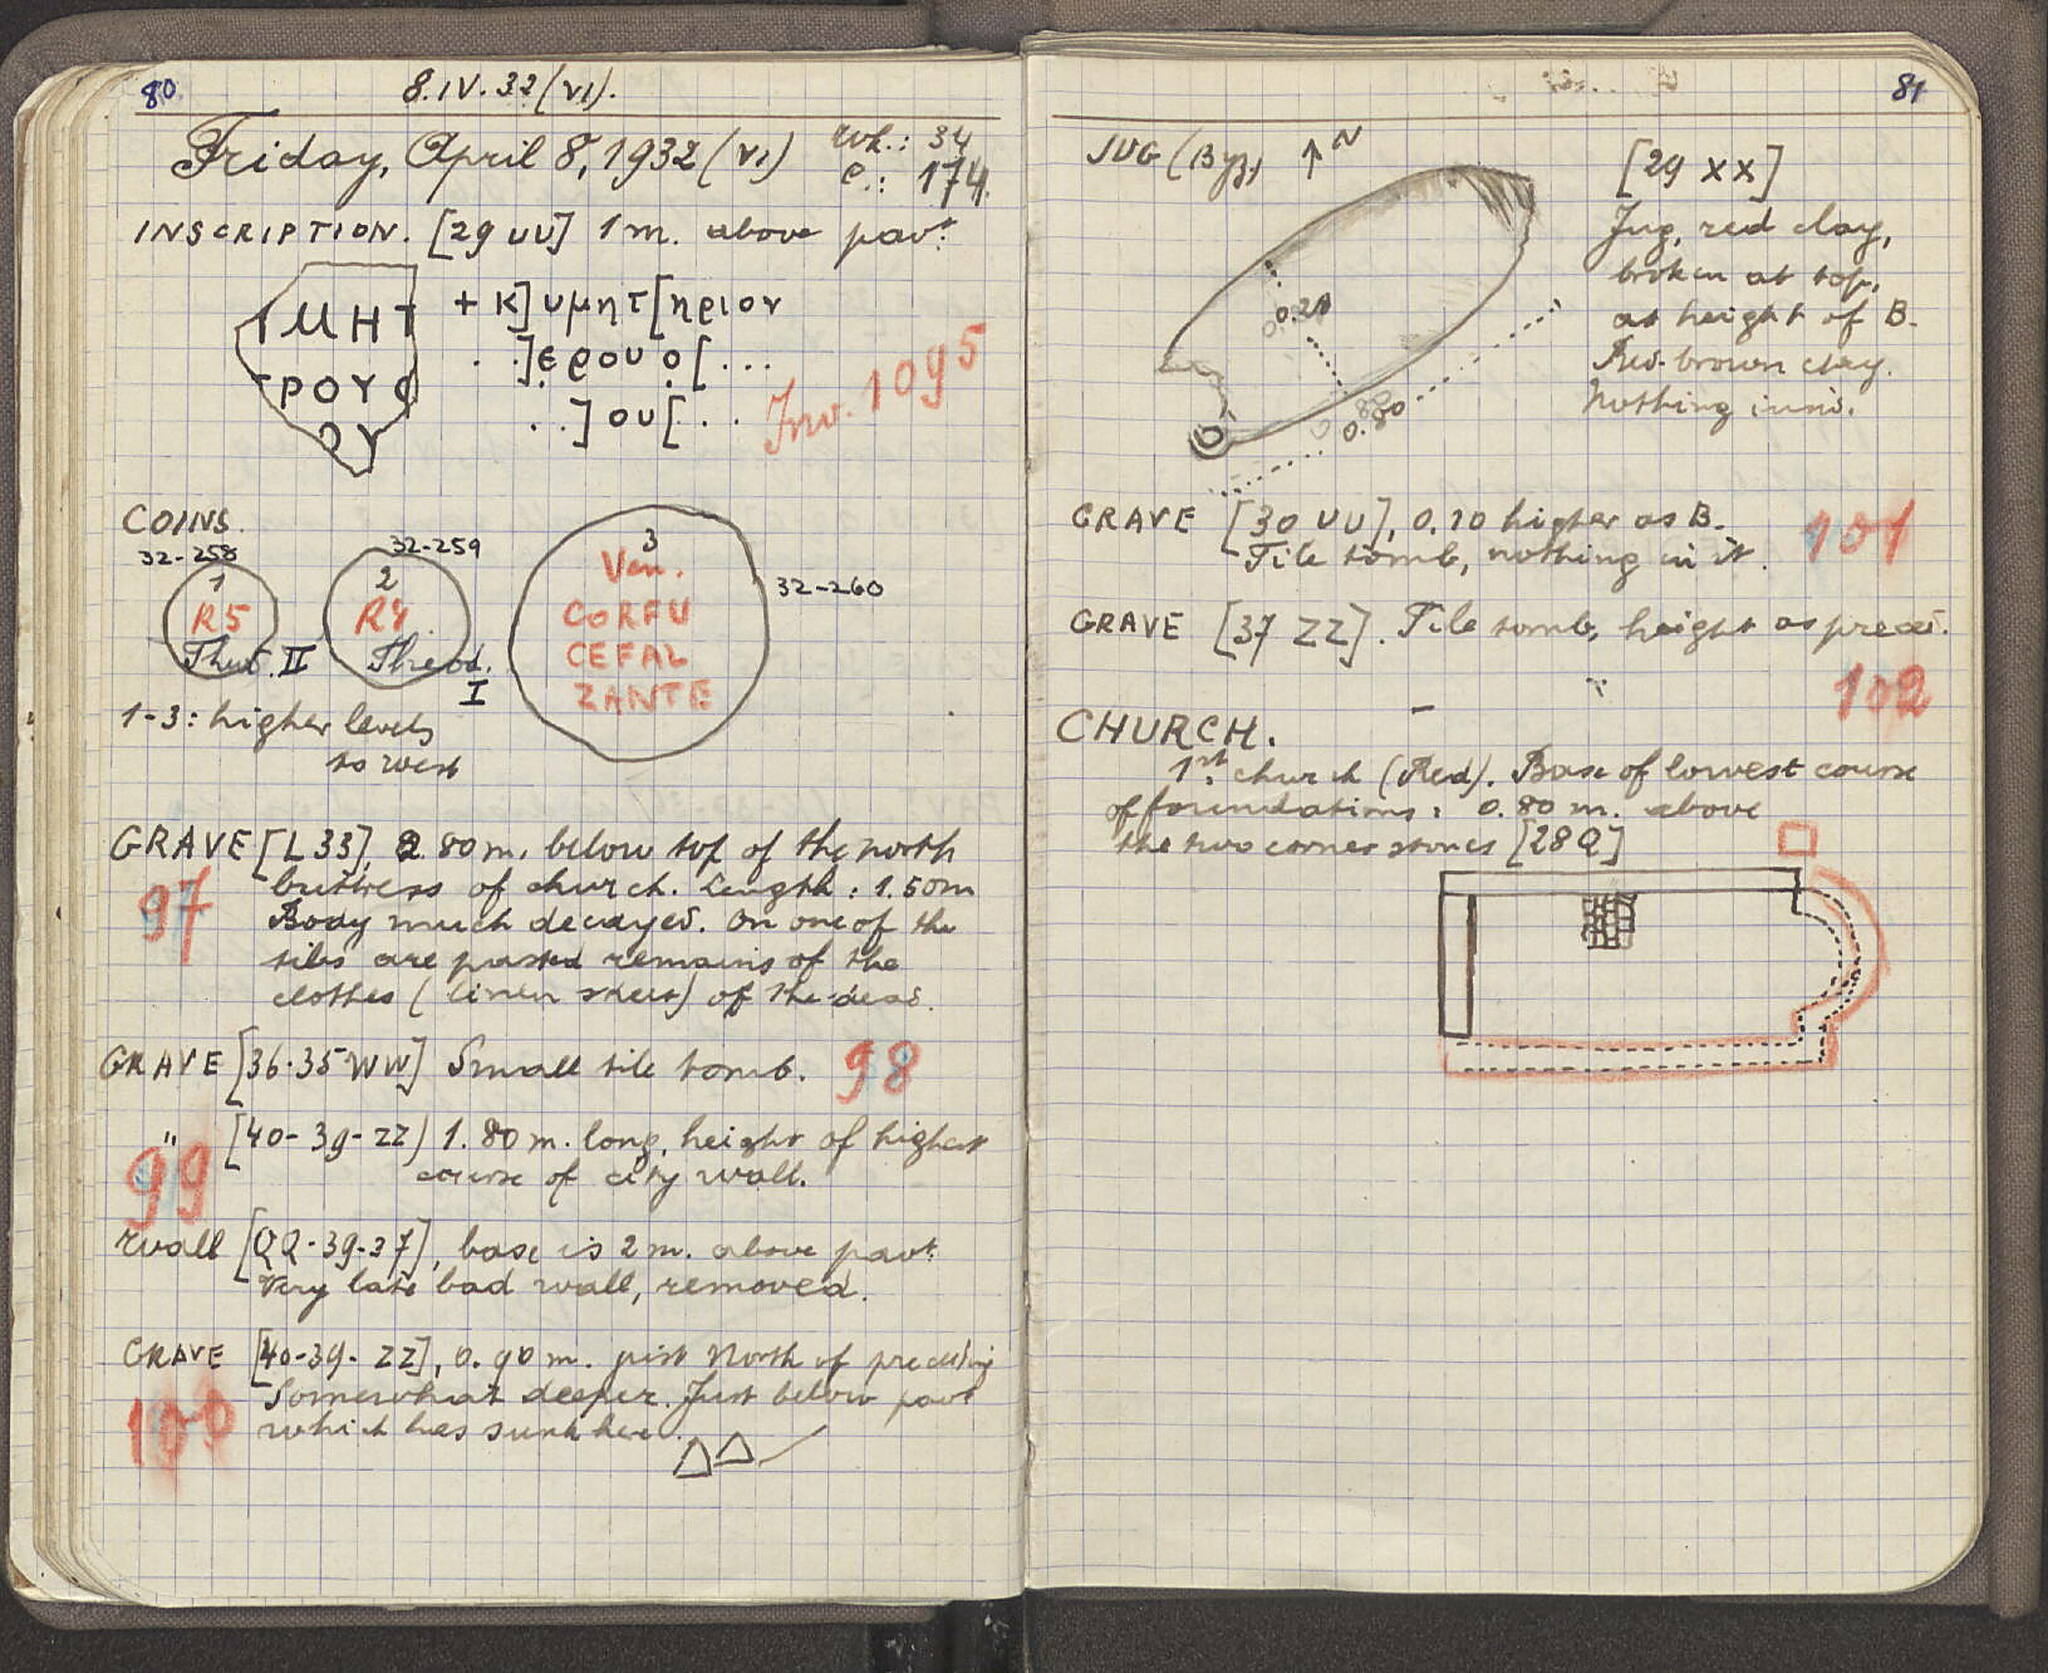 80
8.IV.32 (VI).
Friday, April 8, 1932 (VI)
Wk.: 34
C.: 174.
INSCRIPTION. [29 UU] 1 m. above pavt.
ΥΜΗΤ
ΕΡΟΥΟ
ΟΥ
+ κ]υμητ[ηριον
. .]ερουο[...
. .]ου[. .
Inv. 1095
COINS.
32-258
1
R5
Theod. II
32-259
2
R4
Theod.
I
3
Ven.
CORFU
CEFAL
ZANTE
32-260
1-3: higher levels
to west
GRAVE [L 33], 2.80 m. below top of the north
buttress of church. Length: 1.50 m
97
Body much decayed. On one of the
tiles are pasted remains of the
clothes (linen sheet) of the dead.
GRAVE [36-35 WW] Small tile tomb. 98
" [40-39-ZZ] 1.80 m. long, height of highest
course of city wall.
99
Wall [QQ-39-37], base is 2 m. above pavt.
Very late bad wall, removed.
GRAVE [40-39-ZZ], 0.90 m. just North of preceding
Somewhat deeper. Just below pavt
100
which has sunk here.
81
JUG (Byz) ↑ N
[29 XX]
Jug, red clay,
broken at top,
at height of B.
Red-brown clay.
Nothing insid.
0.80
GRAVE [30 UU], 0.10 higher as B.
Tile tomb, nothing in it. 101
GRAVE [37 ZZ]. Tile tomb, height as preced.
102
CHURCH.
1st. church (Red). Base of lowest course
of foundations: 0.80 m. above
the two corner stones [28Q]